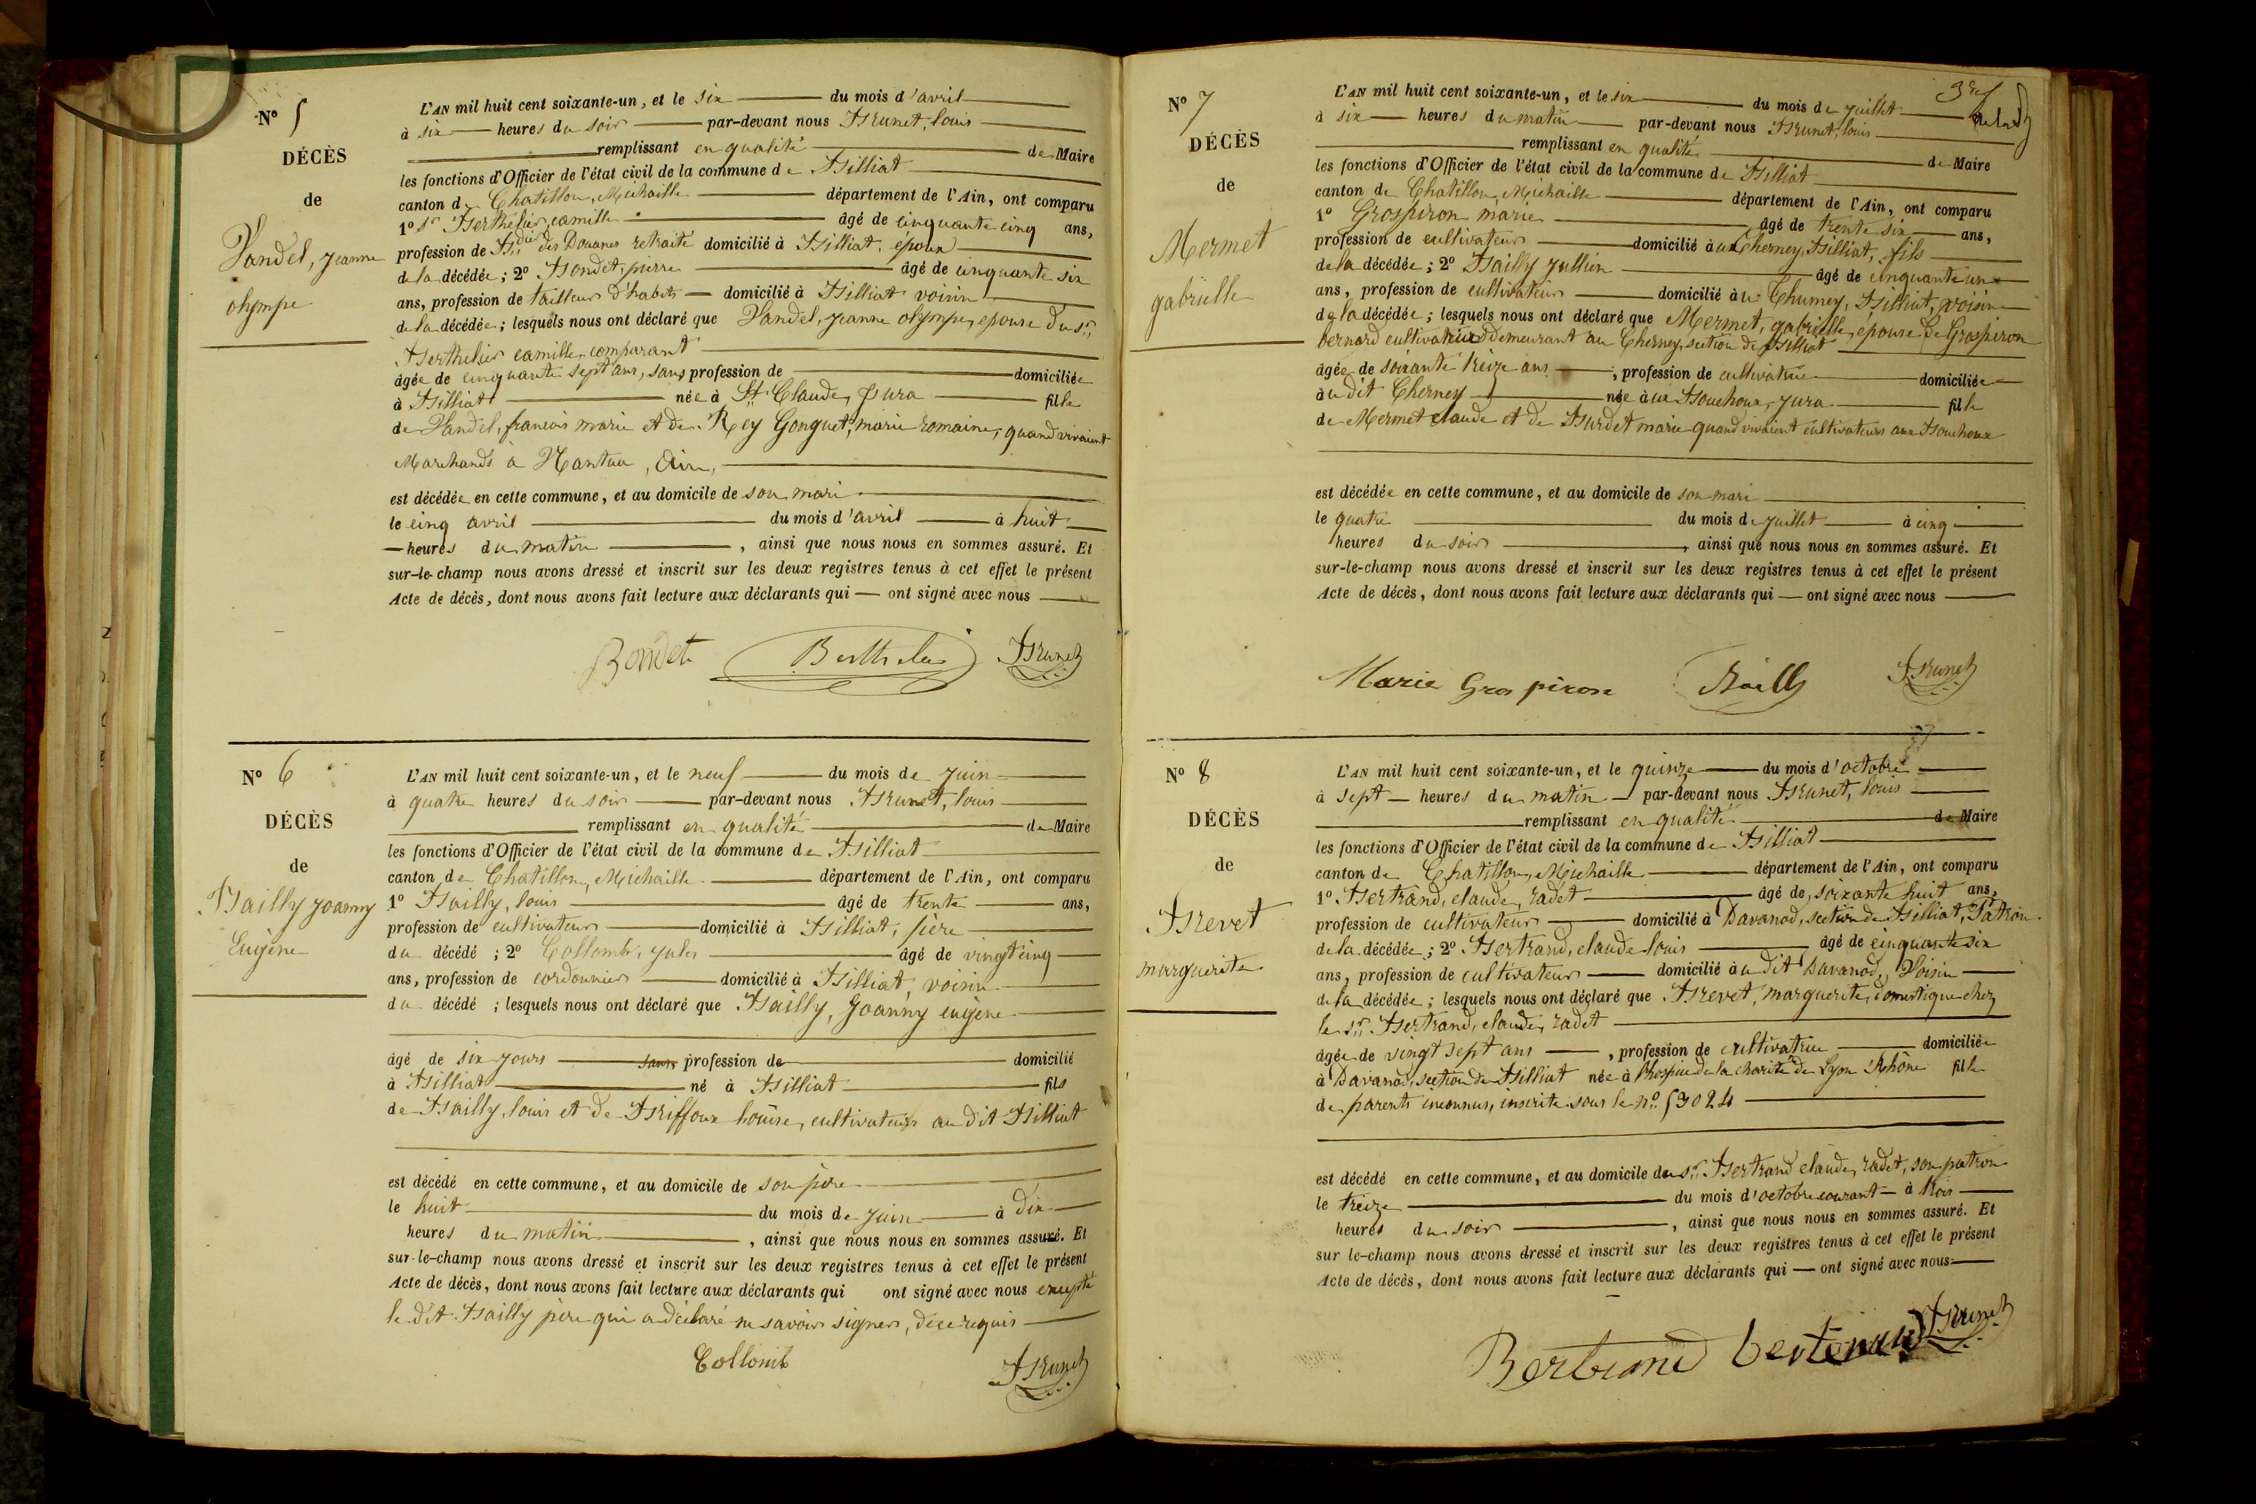 Nº 5
DÉCÈS
de
Vandel, jeanne
olympe
L'AN mil huit cent soixante-un, et le six du mois d'avril
à six heures du soir par-devant nous Brunet, louis
remplissant en qualité de Maire
les fonctions d'Officier de l'état civil de la commune de Billiat
canton de Chatillon, Michaille département de l'Ain, ont comparu
1º Sr Berthelier, camille âgé de cinquante cinq ans,
profession de des Douanes retraité domicilié à Billiat, époux
de la décédée ; 2º Bondet, pierre âgé de cinquante six
ans, profession de tailleur d'habits domicilié à Billiat voisin
de la décédée ; lesquels nous ont déclaré que Vandel, jeanne olympe, épouse du sr
Berthelier camille, comparant
âgée de cinquante sept ans, sans profession de domiciliée
à Billiat née à St Claude, Jura fille
de Vandel, francois marie et de Rey Gonguet, marie romaine, quand vivaient
Marchands à Nantua, Ain,
est décédée en cette commune, et au domicile de son mari
le cinq avril du mois d'avril à huit
heures du matin, ainsi que nous nous en sommes assuré. Et
sur-le-champ nous avons dressé et inscrit sur les deux registres tenus à cet effet le présent
Acte de décès, dont nous avons fait lecture aux déclarants qui ont signé avec nous
Bondet Berthelier Brunet
Nº 6
DÉCÈS
de
Bailly joanny
Eugène
L'AN mil huit cent soixante-un, et le neuf du mois de juin
à quatre heures du soir par-devant nous Brunet, louis
remplissant en qualité de Maire
les fonctions d'Officier de l'état civil de la commune de Billiat
canton de Chatillon, Michaille département de l'Ain, ont comparu
1º Bailly, louis âgé de trente ans,
profession de cultivateur domicilié à Billiat, père
du décédé ; 2º Collomb, jules âgé de vingt cinq
ans, profession de cordonnier domicilié à Billiat, voisin
du décédé ; lesquels nous ont déclaré que Bailly, Joanny eugène
âgé de six jours sans profession de domicilié
à Billiat né à Billiat fils
de Bailly, louis et de Briffoux louise, cultivateurs au dit Billiat
est décédé en cette commune, et au domicile de son père
le huit du mois de juin à dix
heures du matin, ainsi que nous nous en sommes assuré. Et
sur-le-champ nous avons dressé et inscrit sur les deux registres tenus à cet effet le présent
Acte de décès, dont nous avons fait lecture aux déclarants qui ont signé avec nous excepté
le dit Bailly père qui a déclaré ne savoir signer, de ce requis
Collomb Brunet
Nº 7
DÉCÈS
de
Mermet
gabrielle
L'AN mil huit cent soixante-un, et le six du mois de juillet
à six heures du matin par-devant nous Brunet, louis
remplissant en qualité de Maire
les fonctions d'Officier de l'état civil de la commune de Billiat
canton de Chatillon, Michaille département de l'Ain, ont comparu
1º Grospiron marie âgé de trente six ans,
profession de cultivateur domicilié à au Cherney, Billiat, fils
de la décédée ; 2º Bailly jullien âgé de cinquante un
ans, profession de cultivateur domicilié à au Cherney, Billiat, voisin
de la décédée ; lesquels nous ont déclaré que Mermet, gabrielle, épouse de Grospiron
bernard cultivateur demeurant au Cherney, section de Billiat
âgée de soixante treize ans, profession de cultivatrice domiciliée
à au dit Cherney née à aux Bouchoux, jura fille
de Mermet claude et de Burdet marie quand vivaient cultivateurs aux Bouchoux
est décédée en cette commune, et au domicile de son mari
le quatre du mois de juillet à cinq
heures du soir, ainsi que nous nous en sommes assuré. Et
sur-le-champ nous avons dressé et inscrit sur les deux registres tenus à cet effet le présent
Acte de décès, dont nous avons fait lecture aux déclarants qui ont signé avec nous
Marie Gros piron Bailly Brunet
Nº 8
DÉCÈS
de
Brevet
marguerite
L'AN mil huit cent soixante-un, et le quinze du mois d'octobre
à sept heures du matin par-devant nous Brunet, louis
remplissant en qualité de Maire
les fonctions d'Officier de l'état civil de la commune de Billiat
canton de Chatillon, Michaille département de l'Ain, ont comparu
1º Bertrand, claude, radet âgé de soixante huit ans,
profession de cultivateur domicilié à Davanod, section de Billiat, Patron
de la décédée ; 2º Bertrand, claude louis âgé de cinquante six
ans, profession de cultivateur domicilié à au dit Davanod, Voisin
de la décédée ; lesquels nous ont déclaré que Brevet, marguerite, domestique chez
le sr Bertrand, claude, radet
âgée de vingt sept ans, profession de cultivatrice domiciliée
à Davanod, section de Billiat née à l'hospice de la charité de Lyon Rhône fille
de parents inconnus, inscrite sous le nº 53024
est décédé en cette commune, et au domicile du sr Bertrand claude, radet, son patron
le treize du mois d'octobre courant à trois
heures du soir, ainsi que nous nous en sommes assuré. Et
sur le-champ nous avons dressé et inscrit sur les deux registres tenus à cet effet le présent
Acte de décès, dont nous avons fait lecture aux déclarants qui ont signé avec nous
Bertrand bertrand Brunet